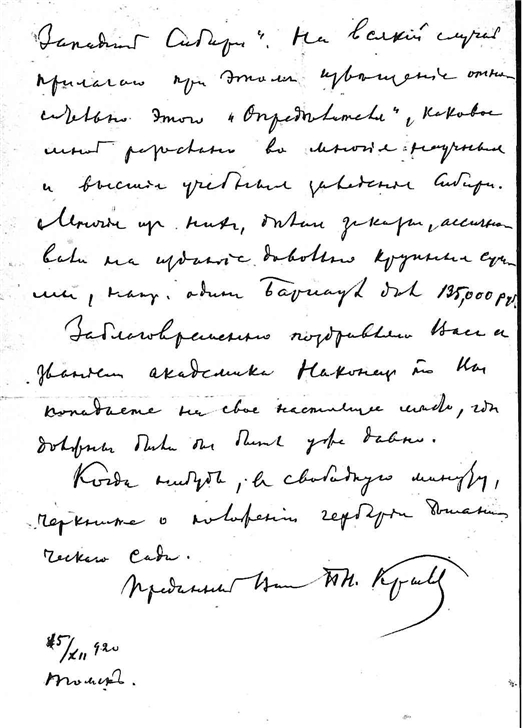 Западной Сибири". На всякий случай
прилагаю при этом извещение относи
тельно этого "Определителя", каковое
мной разослано во многие научные
и высшие учебные заведения Сибири.
Многие из них, делая заказы, ассигно
вали на издание довольно крупные сум
мы, напр. один Барнаул дал 135,000 руб.
Заблаговременно поздравляю Вас с
званием академика Наконец то Вы
попадаете на свое настоящее место, где
должны были бы быть уже давно.
Когда нибудь, в свободную минуту,
черкните о положении гербария Ботани
ческаго сада.
Преданный Вам П.Н. Крылов
15/XII 920
Томскъ.